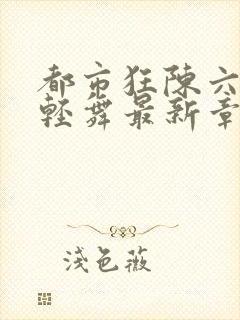 都市狂陈六
轻舞最新章
浅色薇